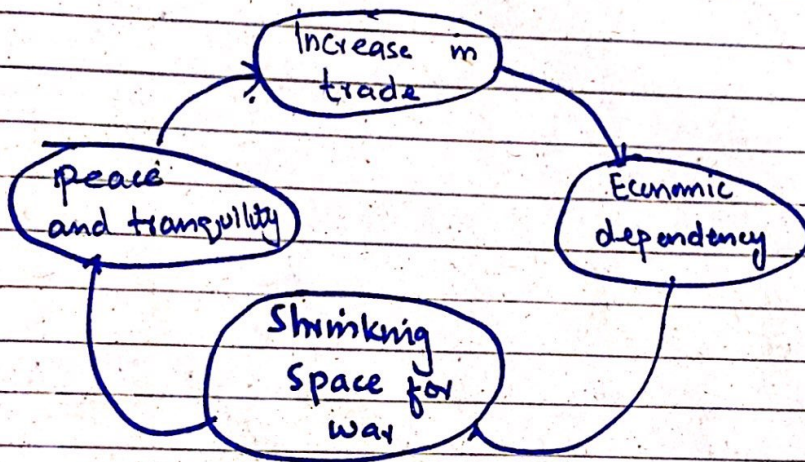 Increase in
trade
Economic
dependency
Shrinking
space for
war
peace
and tranquility